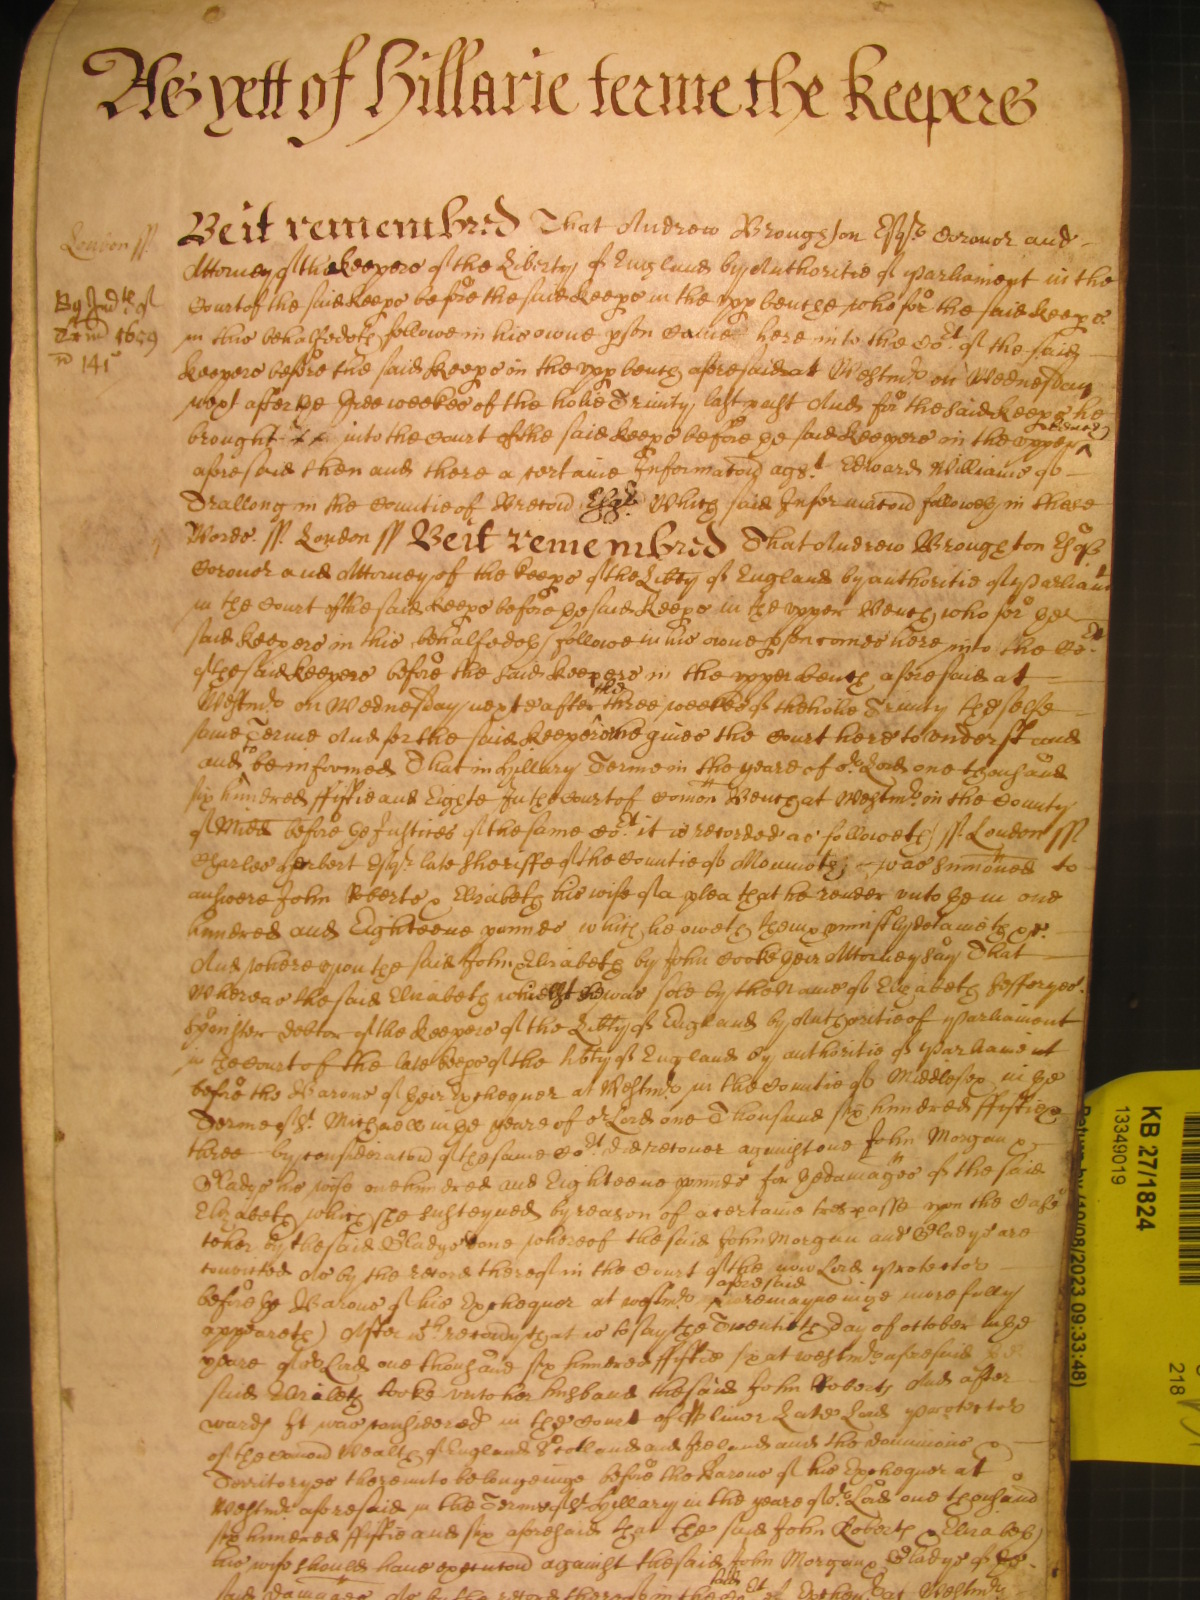 As yett of Hillarie terme the Keepers
London ss.
By Ind
1659
141
Be it remembred That Andrew Broughton Esqr Coronor and
Attorney of the keepers of the Liberty of England by Authoritie of Parliament in the
Court of the said keeps before the said keeps in the upp bench who for the said keeps
in this behalfe doth followe in his owne pson came here into the Cot of the said
keepers before the said keeps in the upp bench aforesaid at Westmr on Wednesday
next after three weekes of the holie Trinity last past And for the said keeps he
brought into the Court of the said keeps before the said keepers in the upper
aforesaid then and there a certaine Informacon agst Edward Williams of
Trallong in the Countie of Brecon Esqr Which said Informacon followeth in these
Words. ss. London ss Be it remembred That Andrew Broughton Esqr
Coronor and Attorney of the keeps of the Libty of England by authoritie of Parliamt
in the Court of the said keeps before the said keeps in the upper Bench who for the
said keepers in this behalfe doth followe in his owne pson comes here into the Cot
of the said keepers before the said keepers in the upper bench aforesaid at
Westmr on Wednesday nexte after the three weekes of the holie Trinity the selfe
same Terme And for the said keepers he gives the Court here to understand
and to be informed That in Hillary Terme in the yeare of or Lord one thousand
six hundred fiftie and Eighte In the Court of Comon Bench at Westmr in the County
of Midd before the Justices of the same Cot it is recorded as followeth ss. London ss.
Charles Herbert Esqr late Sheriffe of the Countie of Monmoth was sumoned to
answere John Roberts & Elizabeth his wife of a plea that he render unto them one
hundred and Eighteene pounds which he oweth them & uniustly detaineth &c.
And whereupon the said John & Elizabeth by John Cooke their Attorney say That
Whereas the said Elizabeth whilst she was sole by the Name of Elizabeth Jefferyes
Spinster debtor of the keepers of the Libty of England by Authoritie of Parliament
in the Court of the late keeps of the libty of England by authoritie of Parliament
before the Barons of their Exchequer at Westmr in the Countie of Middlesex in the
Terme of St. Michaell in the yeare of or Lord one Thousand six hundred fiftie &
three by consideracon of the same Cot did recover against one John Morgan &
Gladys his wife one hundred and Eighteene pounds for the damages of the said
Elizabeth which she susteyned by reason of a certaine trespasse upon the Case
to her by the said Gladys done whereof the said John Morgan and Gladys are
convicted As by the record thereof in the Court of the now Lord Protector
before the Barons of his Exchequer at Westmr aforesaid remayneinge more fully
appeareth) After wch recovry that is to say the Twentieth day of October in the
yeare of or Lord one thousand six hundred fiftie six at Westmr aforesaid the
said Elizabeth tooke unto her husband the said John Roberts And after
wards It was considered in the Court of Oliver Late Lord Protector
of the Comon Wealth of England Scotland and Ireland and the dominions &
Territoryes thereunto belongeinge before the Barons of his Exchequer at
Westmr aforesaid in the Terme of St. Hillary in the yeare of or Lord one thousand
six hundred fiftie and six aforesaid that the said John Roberts & Elizabeth
his wife should have execucon against the said John Morgan & Gladys of the
said damages As by the record thereof in the said Ct of Exchequer at Westmr
KB 27/1824
13349019
218
09:33:48)